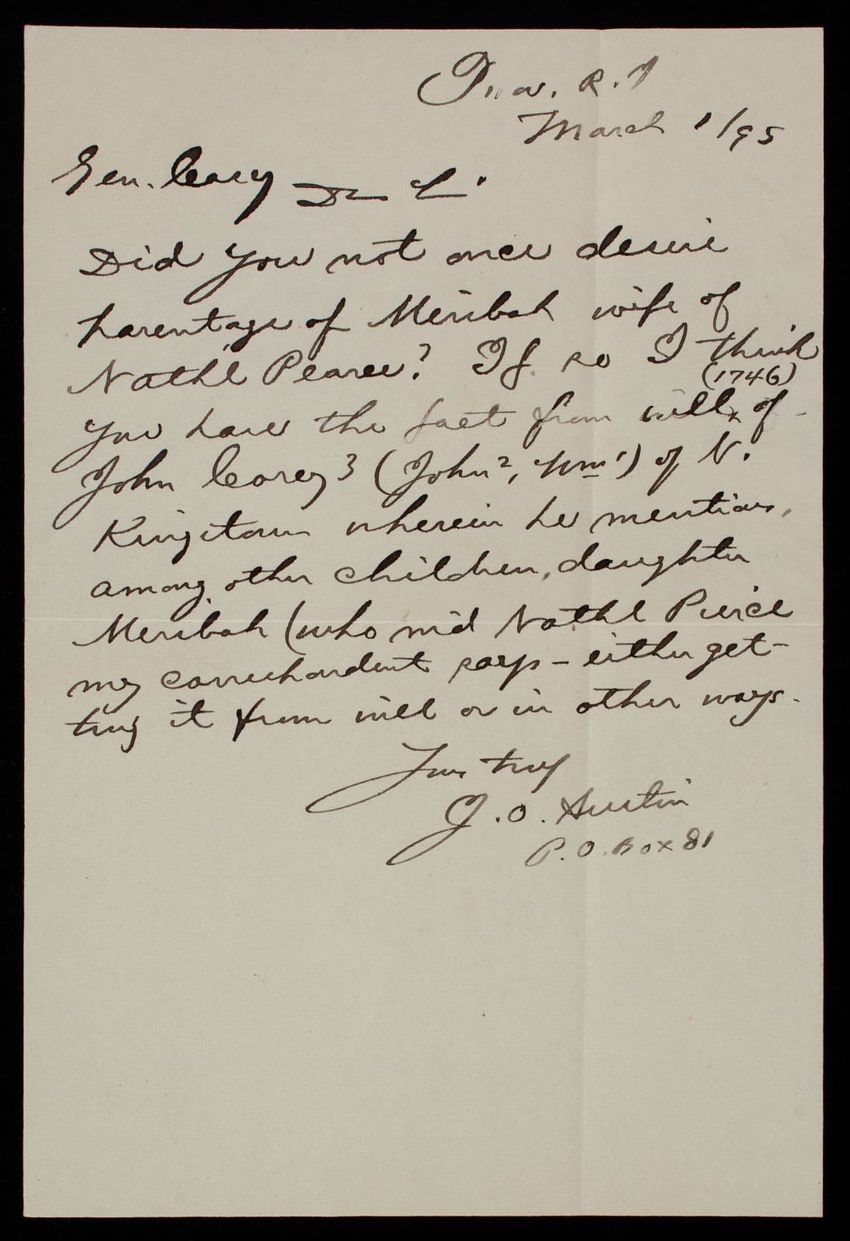 Prov. R.I
March 1/95
Gen. Casey Dr Sr.
Did you not once desire
parentage of Meribah wife of
Nathl Pearce? If so I think
(1746)
you have the fact from will, of
John Corey 3 (John 2, Wm 1) of N.
Kingstown wherein he mentions,
among other children, daughter
Meribah (who m'd Nathl Pierce
my correspondent says - either get-
ting it from will or in other ways.
Yours truly
J. O. Austin
P. O. Box 81